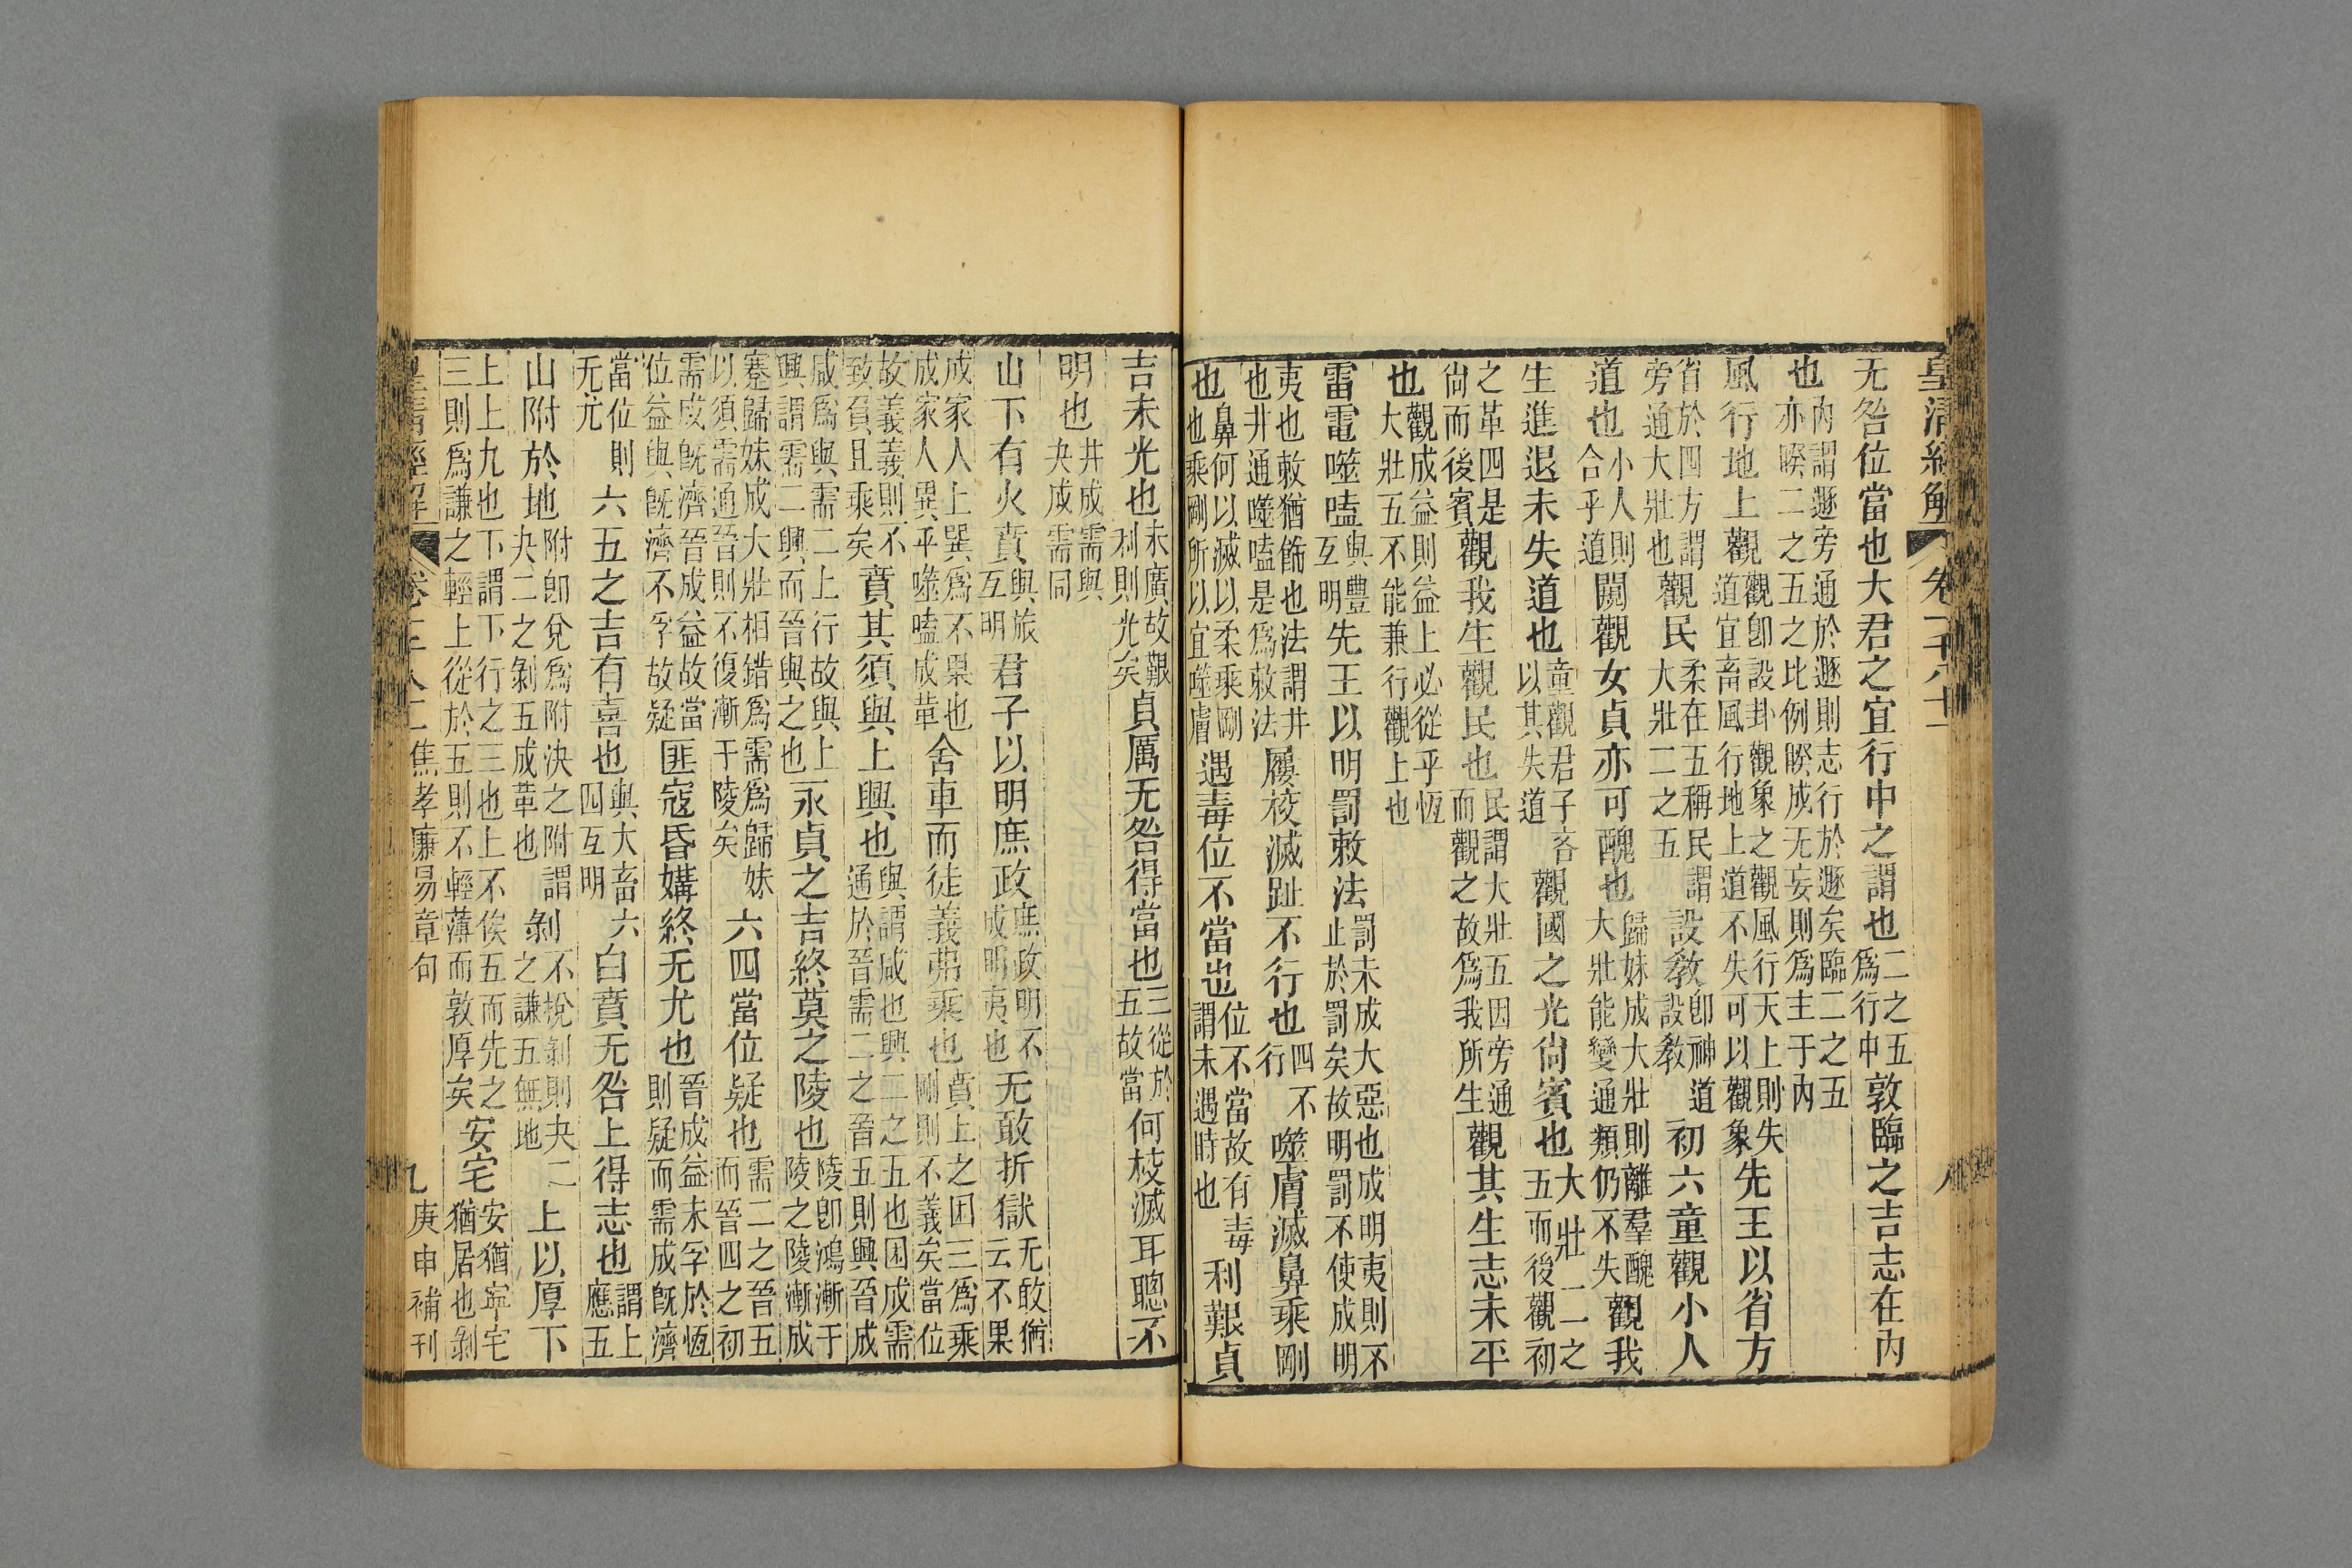 皇清經解 卷 八
无咎位當也大君之宜行中之謂也二之五爲行中敦臨之吉志在內
也內謂遯旁通於遯則志行於遯矣臨二之五亦睽二之五之比例睽成无妄則爲主于內
風行地上觀觀卽設卦觀象之觀風行天上則失道宜畜風行地上道不失可以觀象先王以省方
省於四方謂旁通大壯也觀民柔在五稱民謂大壯二之五設敎卽神道設敎初六童觀小人
道也小人則合乎道闚觀女貞亦可醜也歸妹成大壯則離羣醜大壯能變通類仍不失觀我
生進退未失道也童觀君子吝以其失道觀國之光尙賓也大壯二之五而後觀初
之革四是尙而後賓觀我生觀民也民謂大壯五因旁通而觀之故爲我所生觀其生志未平
也觀成益則益上必從乎恆大壯五不能兼行觀上也
雷電噬嗑與豐互明先王以明罰敕法罰未成大惡也成明夷則不止於罰矣故明罰不使成明
夷也敕猶飾也法謂井也井通噬嗑是爲敕法屨校滅趾不行也四不行噬膚滅鼻乘剛
也鼻何以滅以柔乘剛也乘剛所以宜噬膚遇毒位不當也位不當故有毒謂未遇時也利艱貞
吉未光也未廣故艱利則光矣貞厲无咎得當也三從於五故當何校滅耳聰不
明也井成需與夬成需同
山下有火賁與旅互明君子以明庶政庶政明不成明夷也无敢折獄无敢猶云不果
成家人上巽爲不果也成家人異乎噬嗑成革舍車而徒義弗乘也賁上之困三爲乘剛則不義矣當位
故義義則不致負且乘矣賁其須與上興也與謂咸也興二之五也困成需通於晉需二之晉五則興晉成
咸爲與需二上行故與上興謂需二興而晉與之也永貞之吉終莫之陵也陵卽鴻漸于陵之陵漸成
蹇歸妹成大壯相錯爲需爲歸妹以須需通晉則不復漸于陵矣六四當位疑也需二之晉五而晉四之初
需成旣濟晉成益故當位益與旣濟不孚故疑匪寇昏媾終无尤也晉成益未孚於恆則疑而需成旣濟
當位則无尤六五之吉有喜也與大畜六四互明白賁无咎上得志也謂上應五
山附於地附卽兌爲附決之附謂夬二之剝五成革也剝不挩剝則夬二之謙五無地上以厚下
上上九也下謂下行之三也上不俟五而先之三則爲謙之輕上從於五則不輕薄而敦厚矣安宅安猶寧宅猶居也剝
皇清經解 卷 焦孝廉易章句 九 庚申補刊